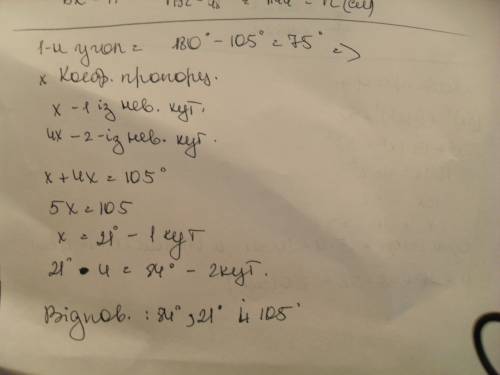 1-й угол = 180° - 105° = 75° =>
x Коеф. пропорц.
x - 1 із нев. кут.
4x - 2 - із нев. кут.
x + 4x = 105°
5x = 105
x = 21° - 1 кут
21° • 4 = 84° - 2 кут.
Віднов. : 84°, 21° й 105°